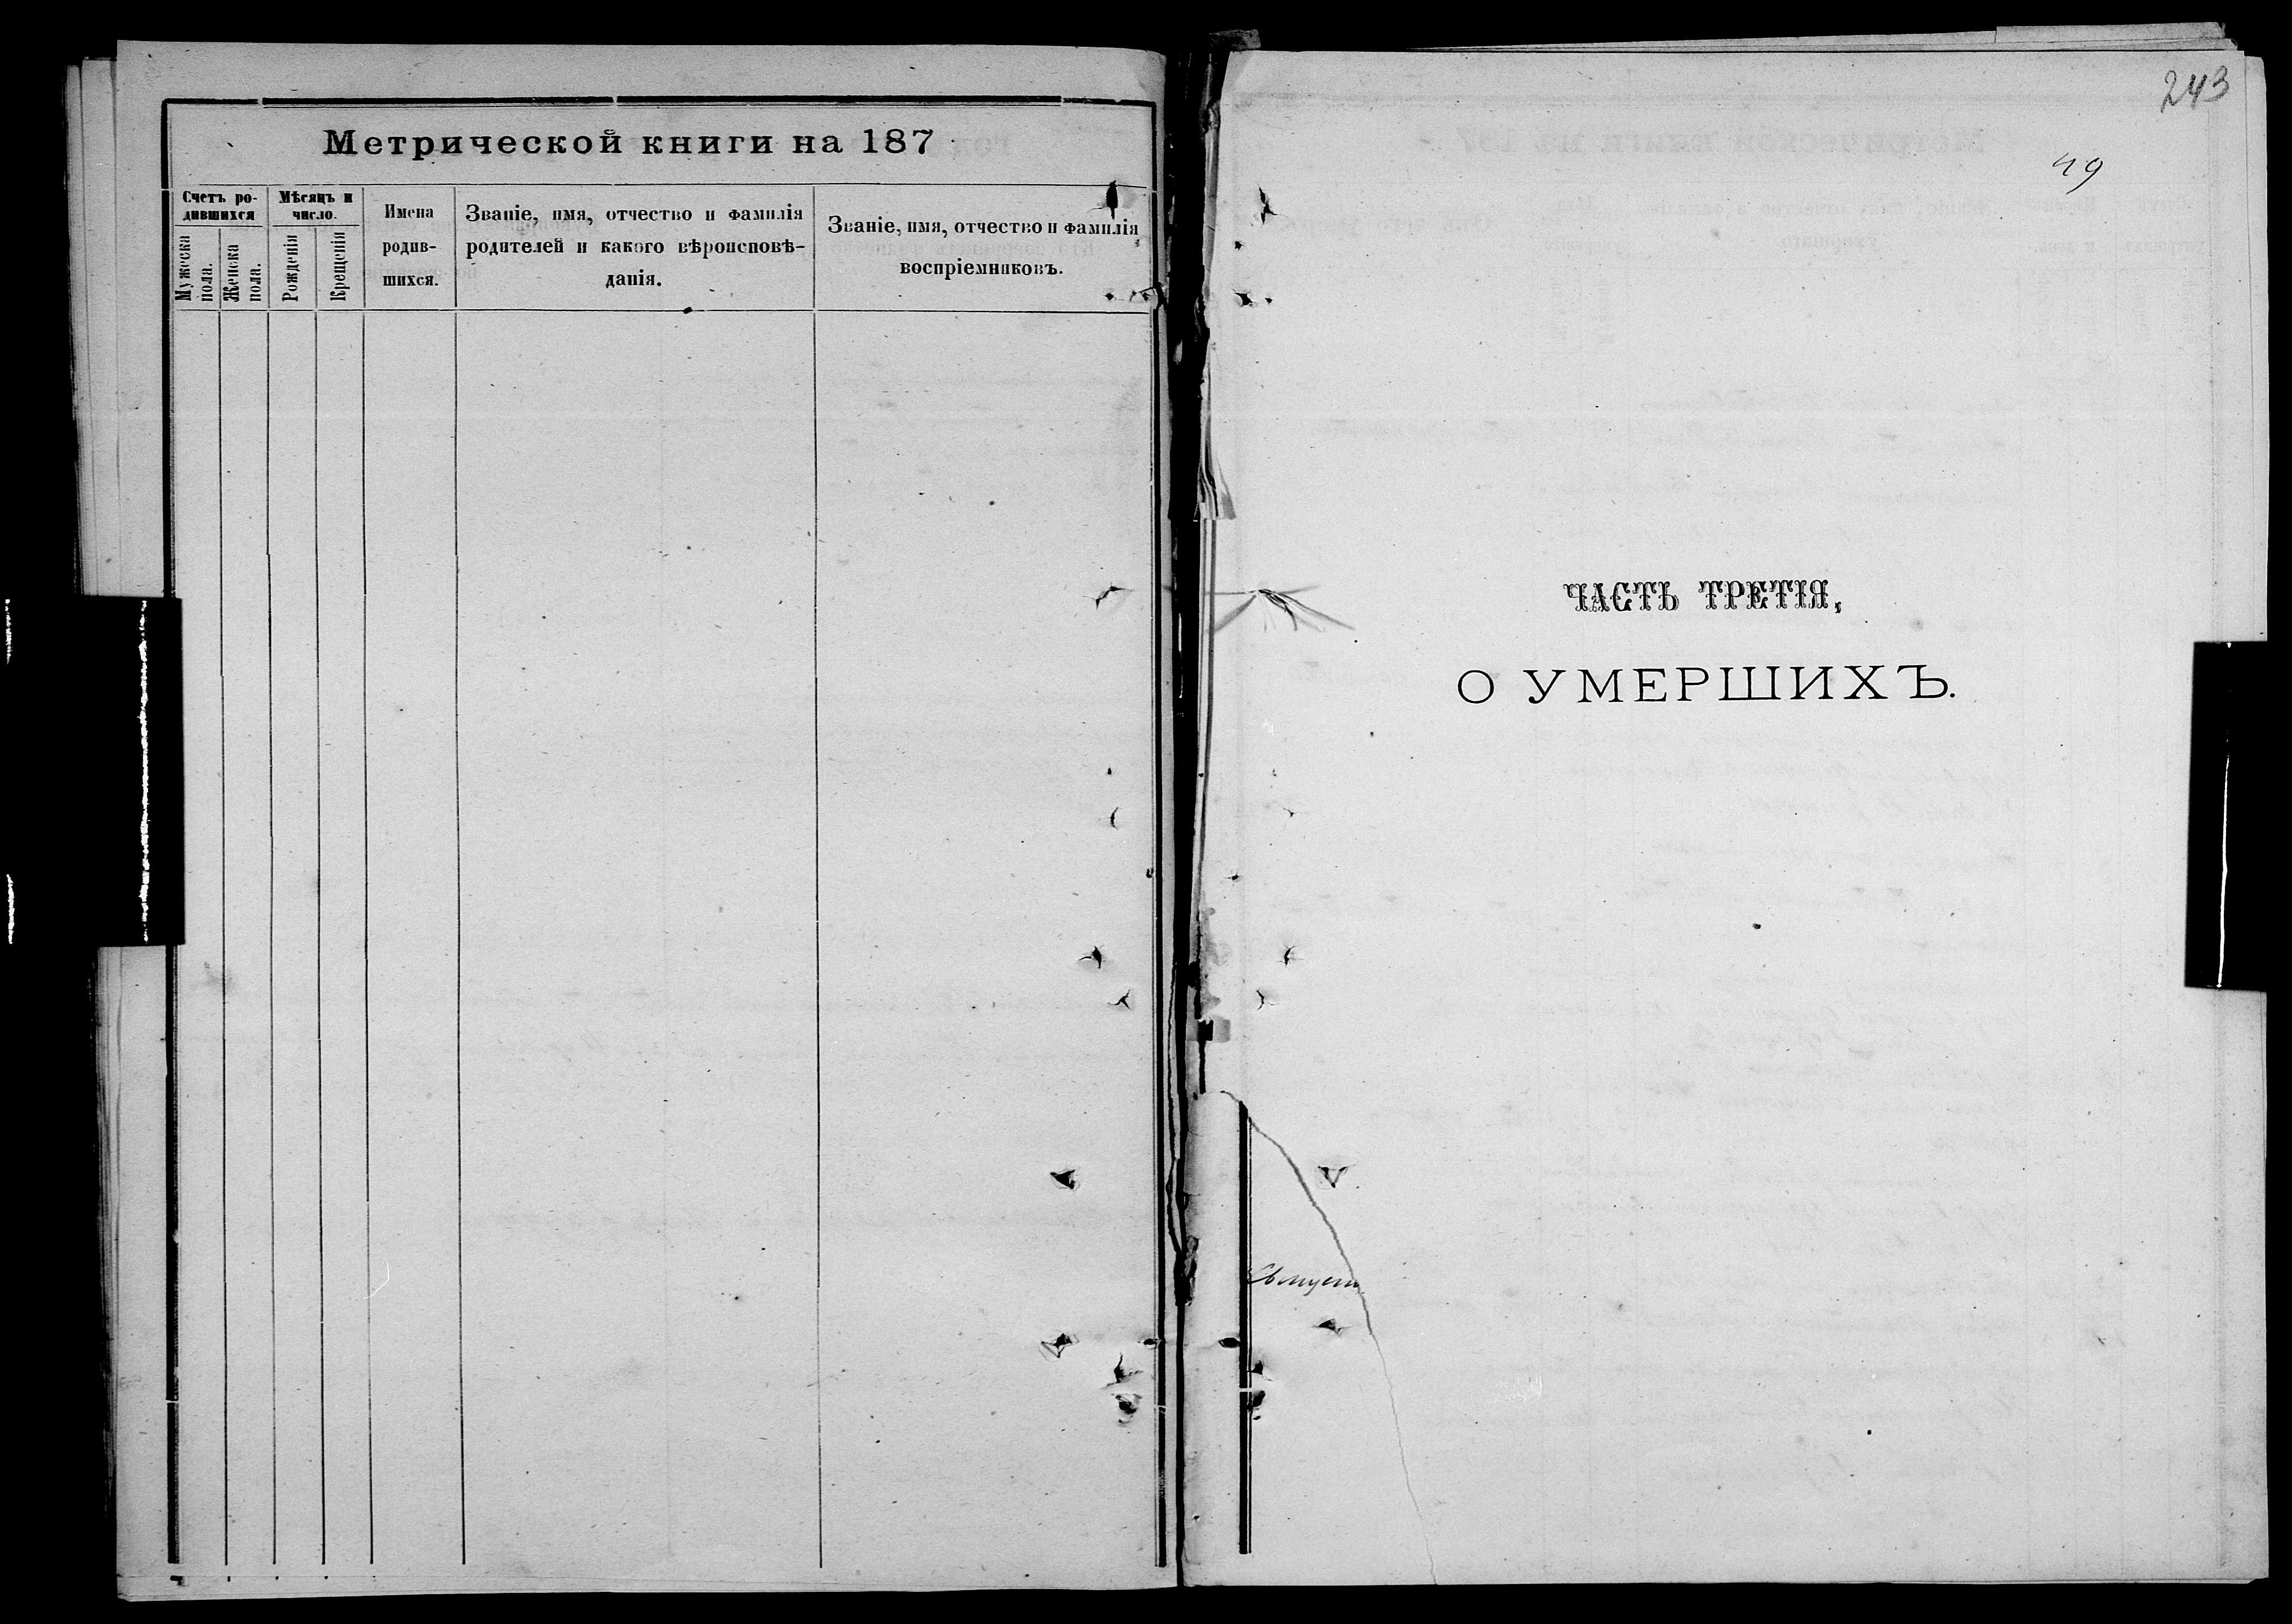 Метрической книги на 187
Счетъ ро-
дившихся
Мужеска
пола.
Женска
пола.
Мѣсяцъ и
число.
Рожденія
Крещенія
Имена
родив-
шихся.
Званіе, имя, отчество и фамилія
родителей и какого вѣроисповѣ-
данія.
Званіе, имя, отчество и фамилія
воспріемниковъ.
243
49
ЧАСТЬ ТРЕТІЯ,
О УМЕРШИХЪ.